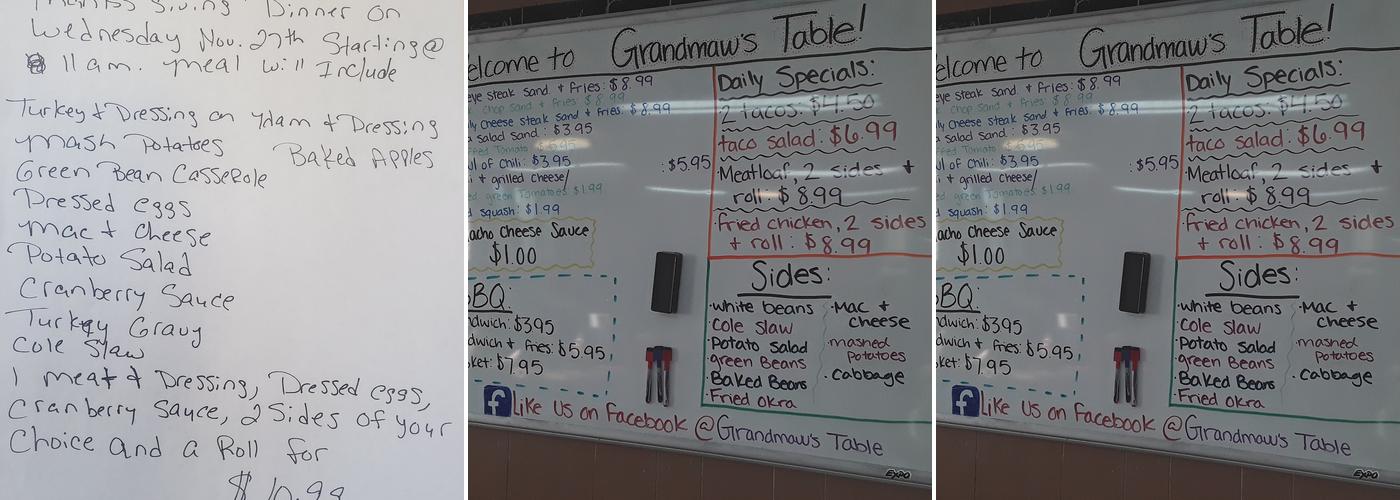 Dinner on
Wednesday Nov. 27th Starting @
11 am. meal will Include
Turkey + Dressing or Ham + Dressing
mash Potatoes
Baked Apples
Green Bean Casserole
Dressed eggs
mac + cheese
Potato Salad
Cranberry Sauce
Turkey Gravy
Cole Slaw
1 meat + Dressing, Dressed eggs,
Cranberry Sauce, 2 Sides of your
Choice and a Roll for
$10.99
elcome to Grandmaw's Table!
eye Steak Sand + Fries: $8.99
chop Sand + Fries $8.99
ly cheese steak Sand + Fries: $8.99
salad Sand: $3.95
Tomato
ul of Chili: $3.95
+ grilled cheese/ : $5.95
green Tomatoes $1.99
squash: $1.99
acho Cheese Sauce
$1.00
BQ:
dwich: $3.95
dwich + Fries: $5.95
ket: $7.95
Daily Specials:
2 tacos: $4.50
taco salad: $6.99
·Meatloaf, 2 sides +
roll: $8.99
·Fried chicken, 2 sides
+ roll: $8.99
Sides:
·white beans
·Cole slaw
·Potato Salad
·green Beans
·Baked Beans
·Fried Okra
·Mac +
cheese
·mashed
Potatoes
·cabbage
Like Us on Facebook @Grandmaw's Table
EXPO
elcome to Grandmaw's Table!
eye Steak Sand + Fries: $8.99
chop Sand + Fries $8.99
ly cheese steak Sand + Fries: $8.99
salad Sand: $3.95
Tomato
ul of Chili: $3.95
+ grilled cheese/ : $5.95
green Tomatoes $1.99
squash: $1.99
acho Cheese Sauce
$1.00
BQ:
dwich: $3.95
dwich + Fries: $5.95
ket: $7.95
Daily Specials:
2 tacos: $4.50
taco salad: $6.99
·Meatloaf, 2 sides +
roll: $8.99
·Fried chicken, 2 sides
+ roll: $8.99
Sides:
·white beans
·Cole slaw
·Potato Salad
·green Beans
·Baked Beans
·Fried Okra
·Mac +
cheese
·mashed
Potatoes
·cabbage
Like Us on Facebook @Grandmaw's Table
EXPO